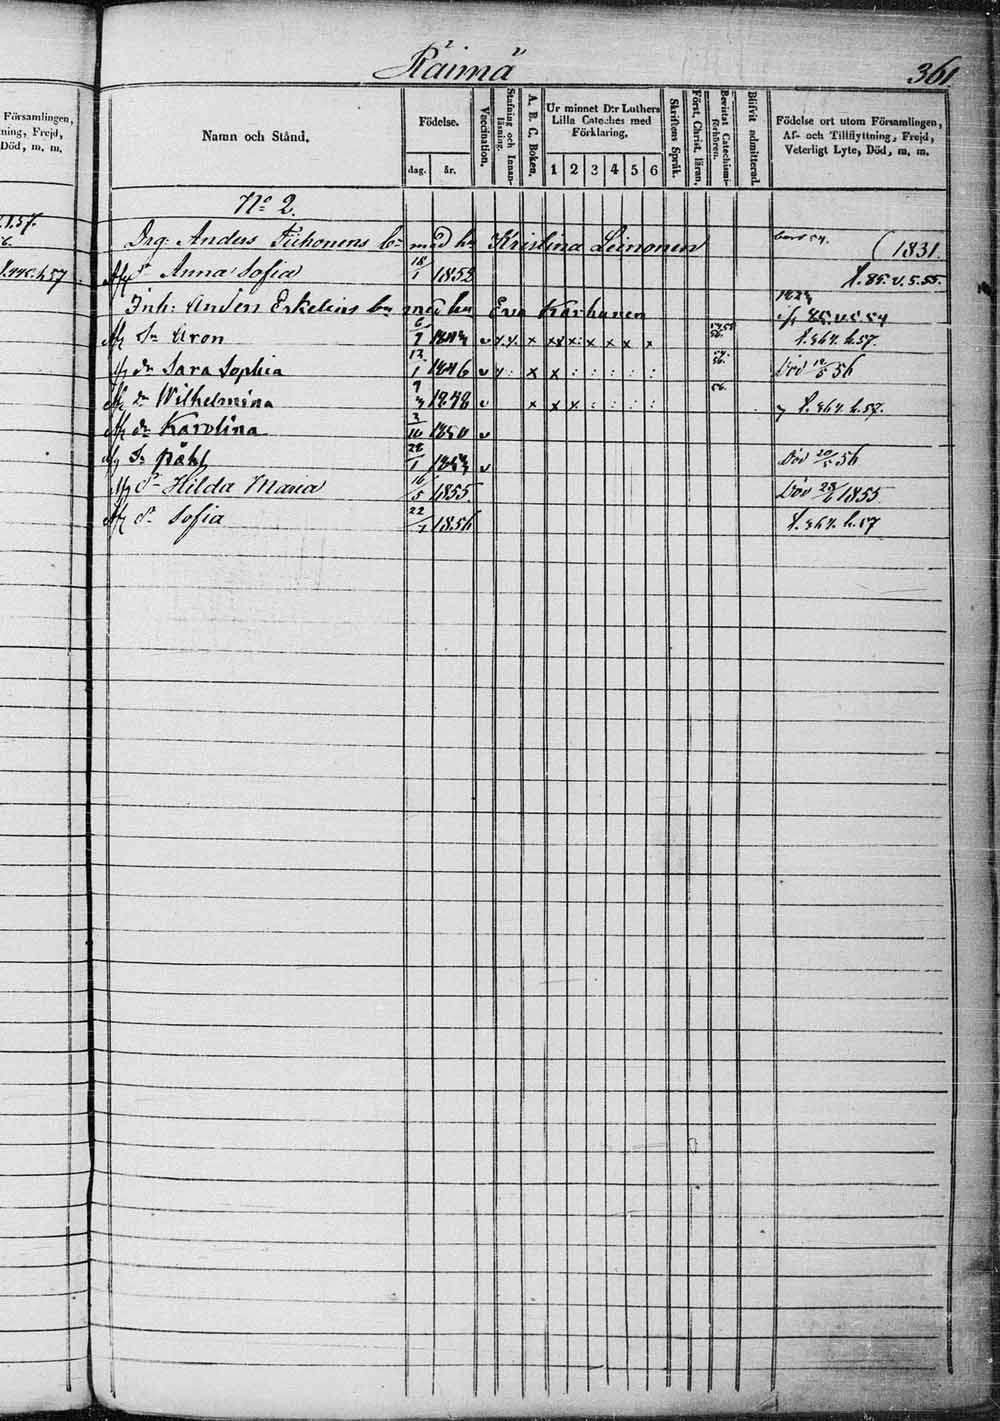 Räimä
361.
Församlingen,
ning, Frejd,
Död, m. m.
Namn och Stånd.
Födelse.
dag. år.
Vaccination.
Stafning och Innanläsning.
A. B. C. Boken.
Ur minnet D:r Luthers
Lilla Cateches med
Förklaring.
1 2 3 4 5 6
Skriftens Språk.
Först. Christ. läran.
Bevistat Catechismiförhören.
Blifvit admitterad.
Födelse ort utom Församlingen,
Af- och Tillflyttning, Frejd,
Veterligt Lyte, Död, m. m.
No 2.
Drg. Anders Tiihonens bn med hu Kristina Leinonen (1831.
dr Anna Sofia 18/1 1852 f. 85. v. 5. 55.
Inh: Anders Erkelins bn med hu Eva Karhunen
Sn Aron v x x x x x x f. 367. h. 57.
dr Sara Sophia 13/1 1846 v x x : : : : : Död 56
dr Wilhelmina 1848 v x x x : : : : f. 367. h. 57.
dr Karolina 1850 v
Sn Påhl v Död 56
dr Hilda Maria 16/5 1855 Död 1855
dr Sofia 1856 f. 367. h. 57